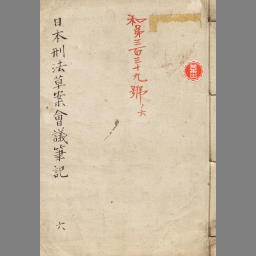 和第三百三十九號ノ六
日本刑法草案會議筆記
六